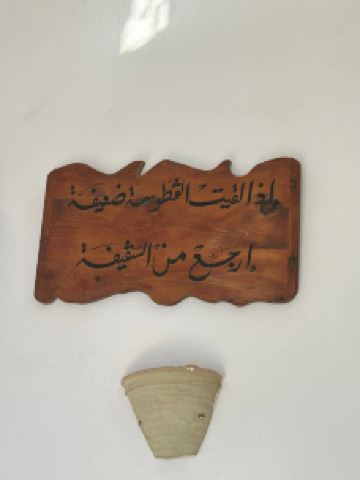 إذا لقيت القطوسة ضعيفة
إرجع من السقيفة